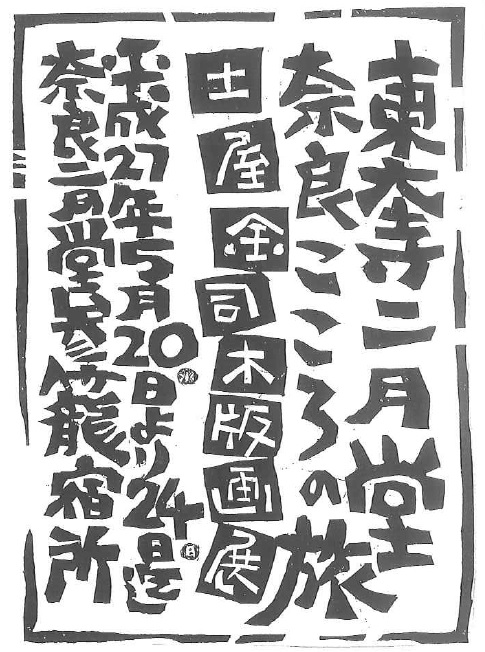 東大寺二月堂
奈良こころの旅
土屋金司木版画展
平成27年5月20日より24日迄
奈良二月堂参籠宿所